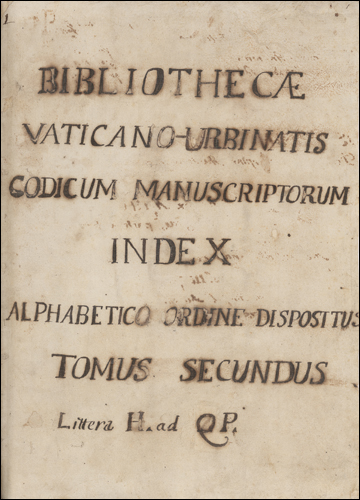 BIBLIOTHECÆ
VATICANO-URBINATIS
CODICUM MANUSCRIPTORUM
INDEX
ALPHABETICO ORDINE DISPOSITUS
TOMUS SECUNDUS
Littera H. ad QP.